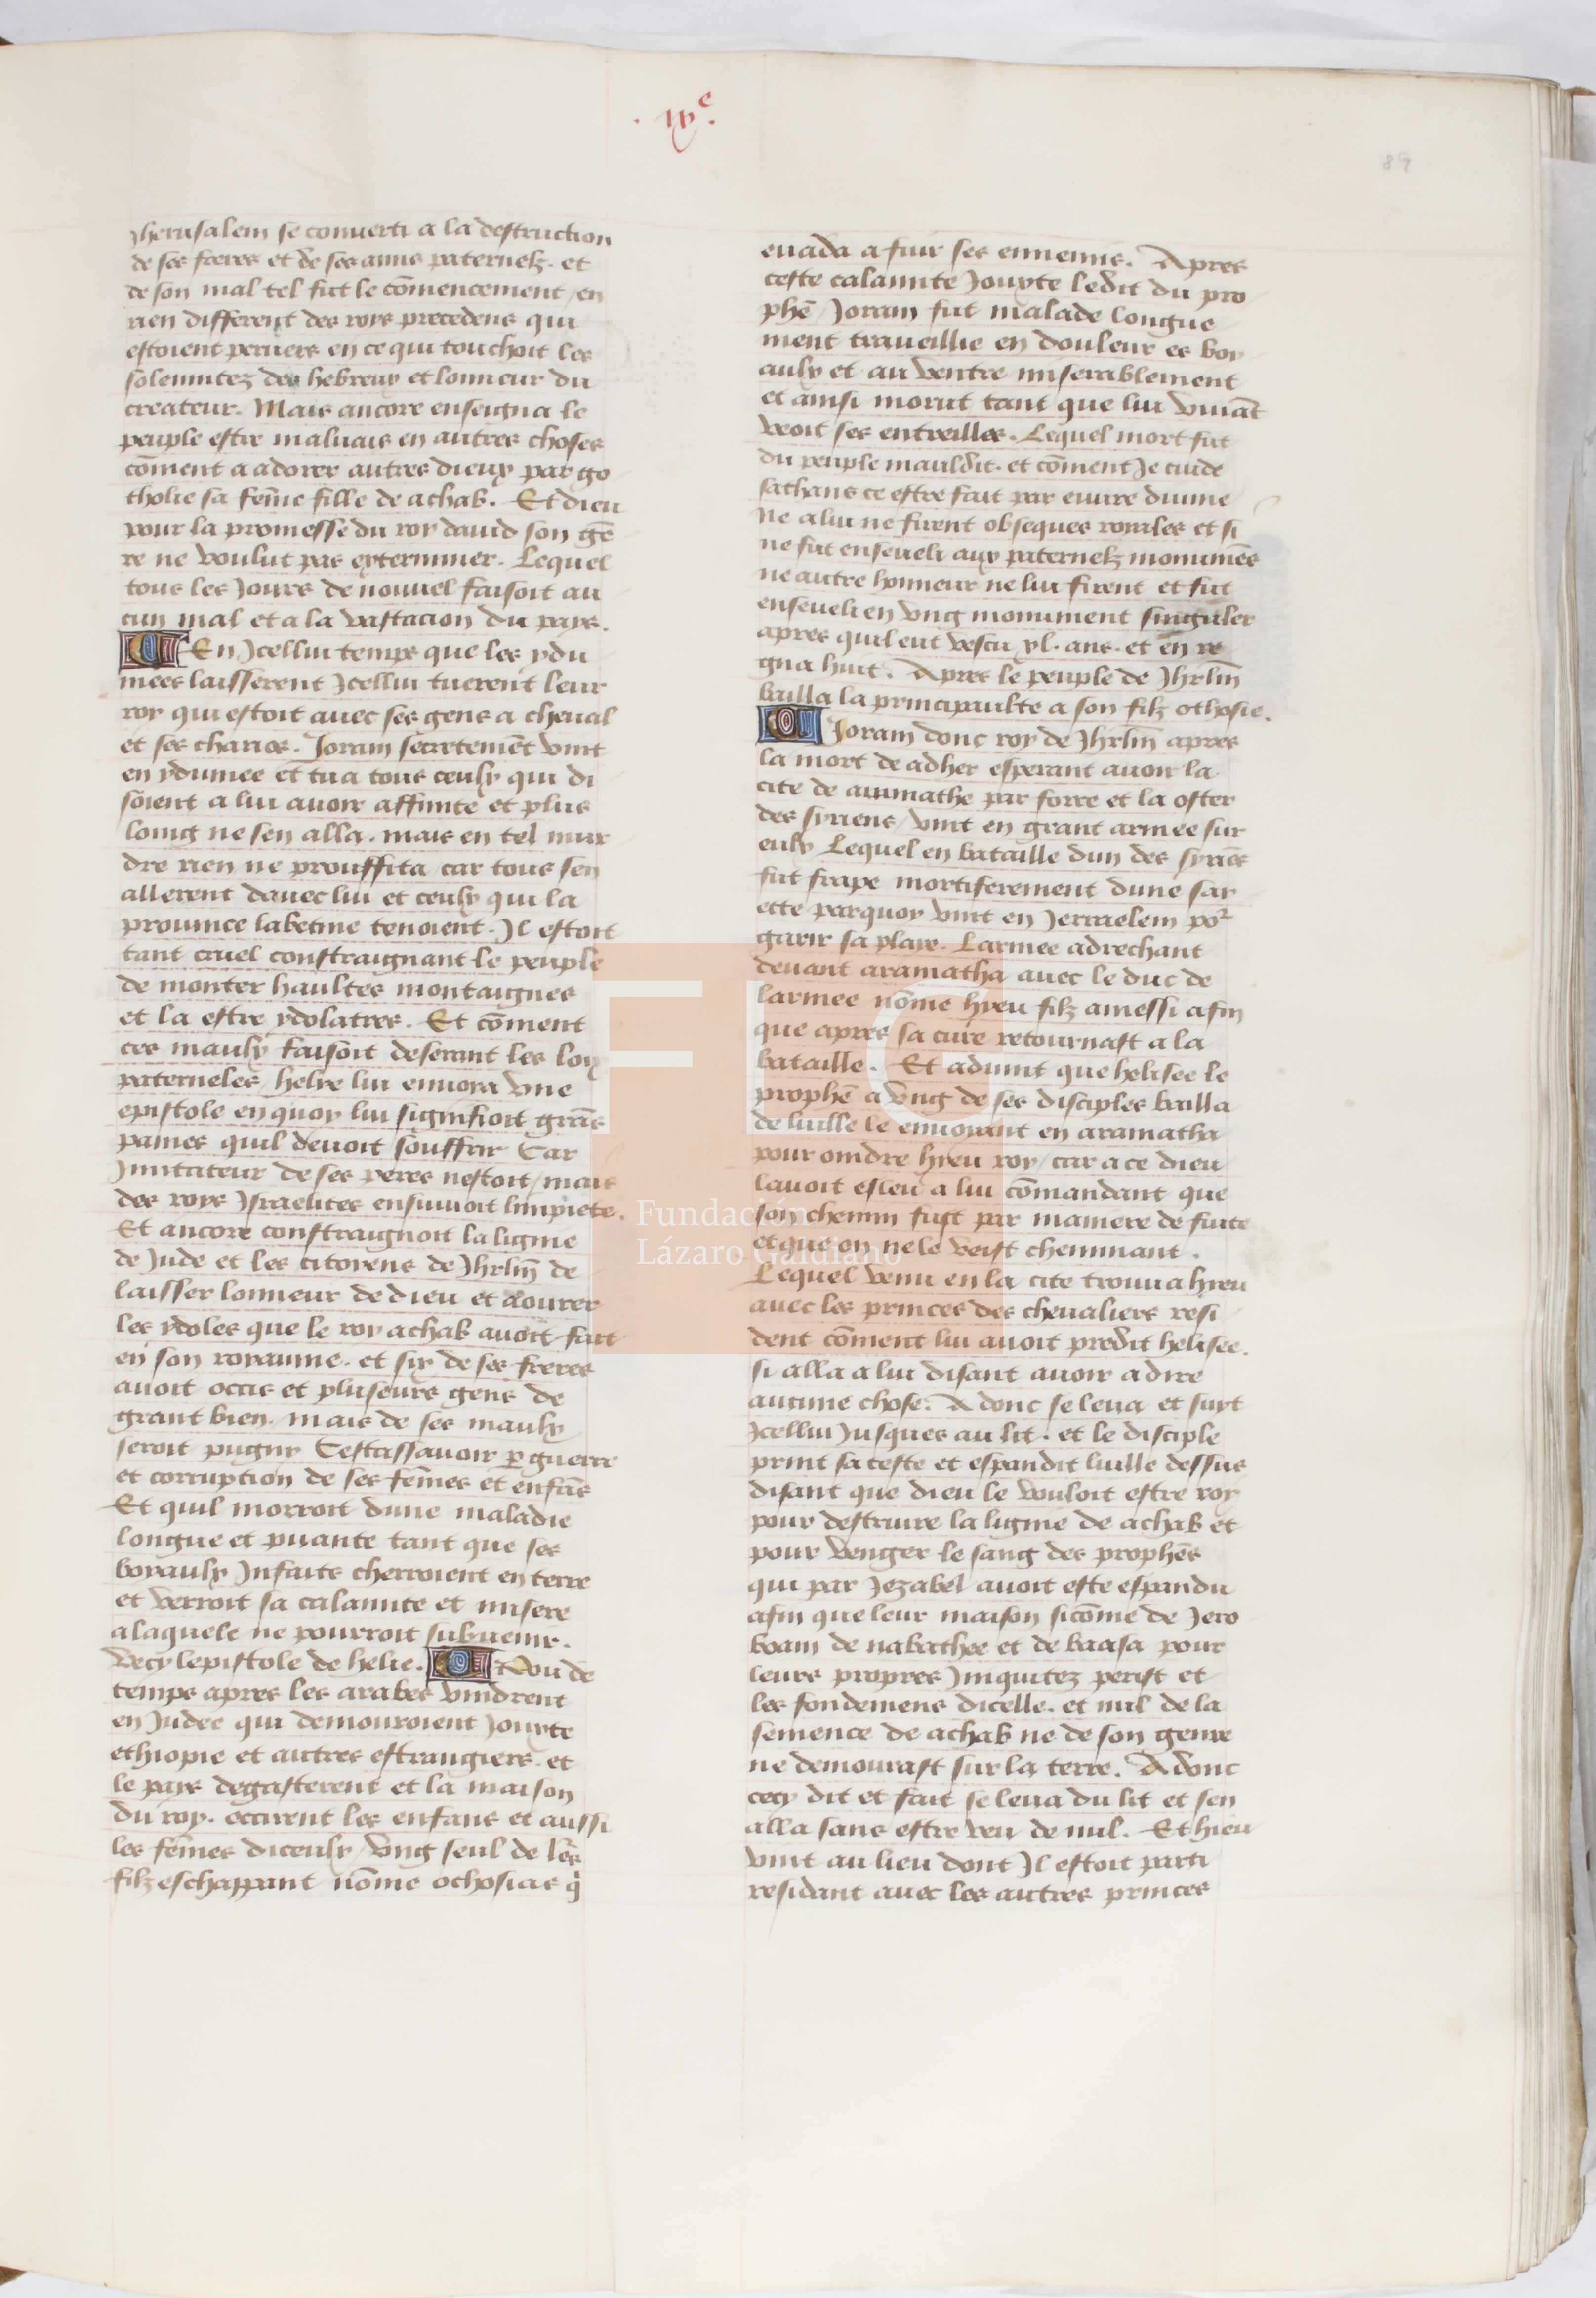 . ix.e
89
Jherusalem se conuerti a la destruction
de ses freres et de ses amis paternelz. et
de son mal tel fut le cōmencement / en
rien different des roys precedens qui
estoient peruers en ce qui touchoit les
solennitez des hebreux et lonneur du
createur. Mais ancore enseigna le
peuple estre maluais en autres choses
cōment a adorer autres dieux par go
tholie sa fēme fille de achab. Et dieu
pour la promesse du roy dauid son gē
re ne voulut pas exterminer. Lequel
tous les Jours de nouuel faisoit au
cun mal et a la vastacion du pays.
En Jcellui temps que les ydu
mees laisserent Jcellui tuerent leur
roy qui estoit auec ses gens a cheual
et ses charios. Joram secretemēt vint
en ydumee et tua tous ceulx qui di
soient a lui auoir affinite et plus
loing ne sen alla. mais en tel mur
dre rien ne prouffita / car tous sen
allerent dauec lui et ceulx qui la
prouince labetine tenoient. Jl estoit
tant cruel constraignant le peuple
de monter haultes montaignes
et la estre ydolatres. Et cōment
ces maulx faisoit deserant les loix
paterneles / helye lui enuoya vne
epistole en quoy lui signifioit grās
paines quil deuoit souffrir Car
Jmitateur de ses peres nestoit / mais
des roys Jsraelites ensiuuoit limpiete.
Et ancore constraignoit la ligne
de Jude et les citoyens de Jhrlm̄ de
laisser lonneur de dieu et aourer
les ydoles que le roy achab auoit fait
en son royaume. et six de ses freres
auoit occis et pluseurs gens de
grant bien. mais de ses maulx
seroit pugny Cestassauoir p guerre
et corruption de ses fēmes et enfās
Et quil morroit dune maladie
longue et puante tant que ses
boyaulx Jnfaits cherroient en terre
et verroit sa calamite et misere
a laquele ne pourroit subuenir.
Vecy lepistole de helie. Pou de
temps apres les arabes vindrent
en Judee qui demouroient Jouxte
ethiopie et autres estrangiers. et
le pays degasterent et la maison
du roy. occirent les enfans et aussi
les fēmes diceulx / vng seul de lēs
filz eschappant nōme ochosias q̇
euada a fuir ses ennemis. Apres
ceste calamite Jouxte ledit du pro
phē / Joram fut malade longue
ment traueillie en douleur es boy
aulx et au ventre miserablement
et ainsi morut tant que lui viuāt
veoit ses entreilles. Lequel mort fut
du peuple mauldit. et cōment Je cuide
sachans ce estre fait par euure diuine
ne a lui ne firent obseques royales et si
ne fut enseueli aux paternelz monumēs
ne autre honneur ne lui firent et fut
enseueli en vng monument singuler
apres quil eut vescu xl. ans. et en re
gna huit. Apres le peuple de Jhrlm̄
bailla la principaulte a son filz othosie.
Joram donc roy de Jhrlm̄ apres
la mort de adher esperant auoir la
cite de aumathe par force et la oster
des syriens / vint en grant armee sur
eulx Lequel en bataille dun des syriēs
fut frape mortiferement dune say
ette parquoy vint en Jerraelem po2
garir sa playe. Larmee adrechant
deuant aramatha auec le duc de
larmee nōme hyeu filz amessi afin
que apres sa cure retournast a la
bataille. Et aduint que helisee le
prophē a vng de ses disciples bailla
de luille le enuoyant en aramatha
pour oindre hyeu roy / car a ce dieu
lauoit esleu a lui cōmandant que
son chemin fust par maniere de fuite
et que on ne le veist cheminant.
Lequel venu en la cite trouua hyeu
auec les princes des cheualiers resi
dent cōment lui auoit predit helisee.
si alla a lui disant auoir a dire
aucune chose. A donc se leua et suyt
Jcellui Jusques au lit. et le disciple
print sa teste et espandit luille dessus
disant que dieu le vouloit estre roy
pour destruire la ligne de achab et
pour venger le sang des prophēs
qui par Jezabel auoit este espandu
afin que leur maison sicōme de Jero
boam de nabathee et de baasa pour
leurs propres Jniquitez perist et
les fondemens dicelle. et nul de la
semence de achab ne de son genre
ne demourast sur la terre. A donc
cecy dit et fait se leua du lit et sen
alla sans estre veu de nul. Et hieu
vint au lieu dont Jl estoit parti
residant auec les autres princes
FLG
Fundación
Lázaro Galdiano